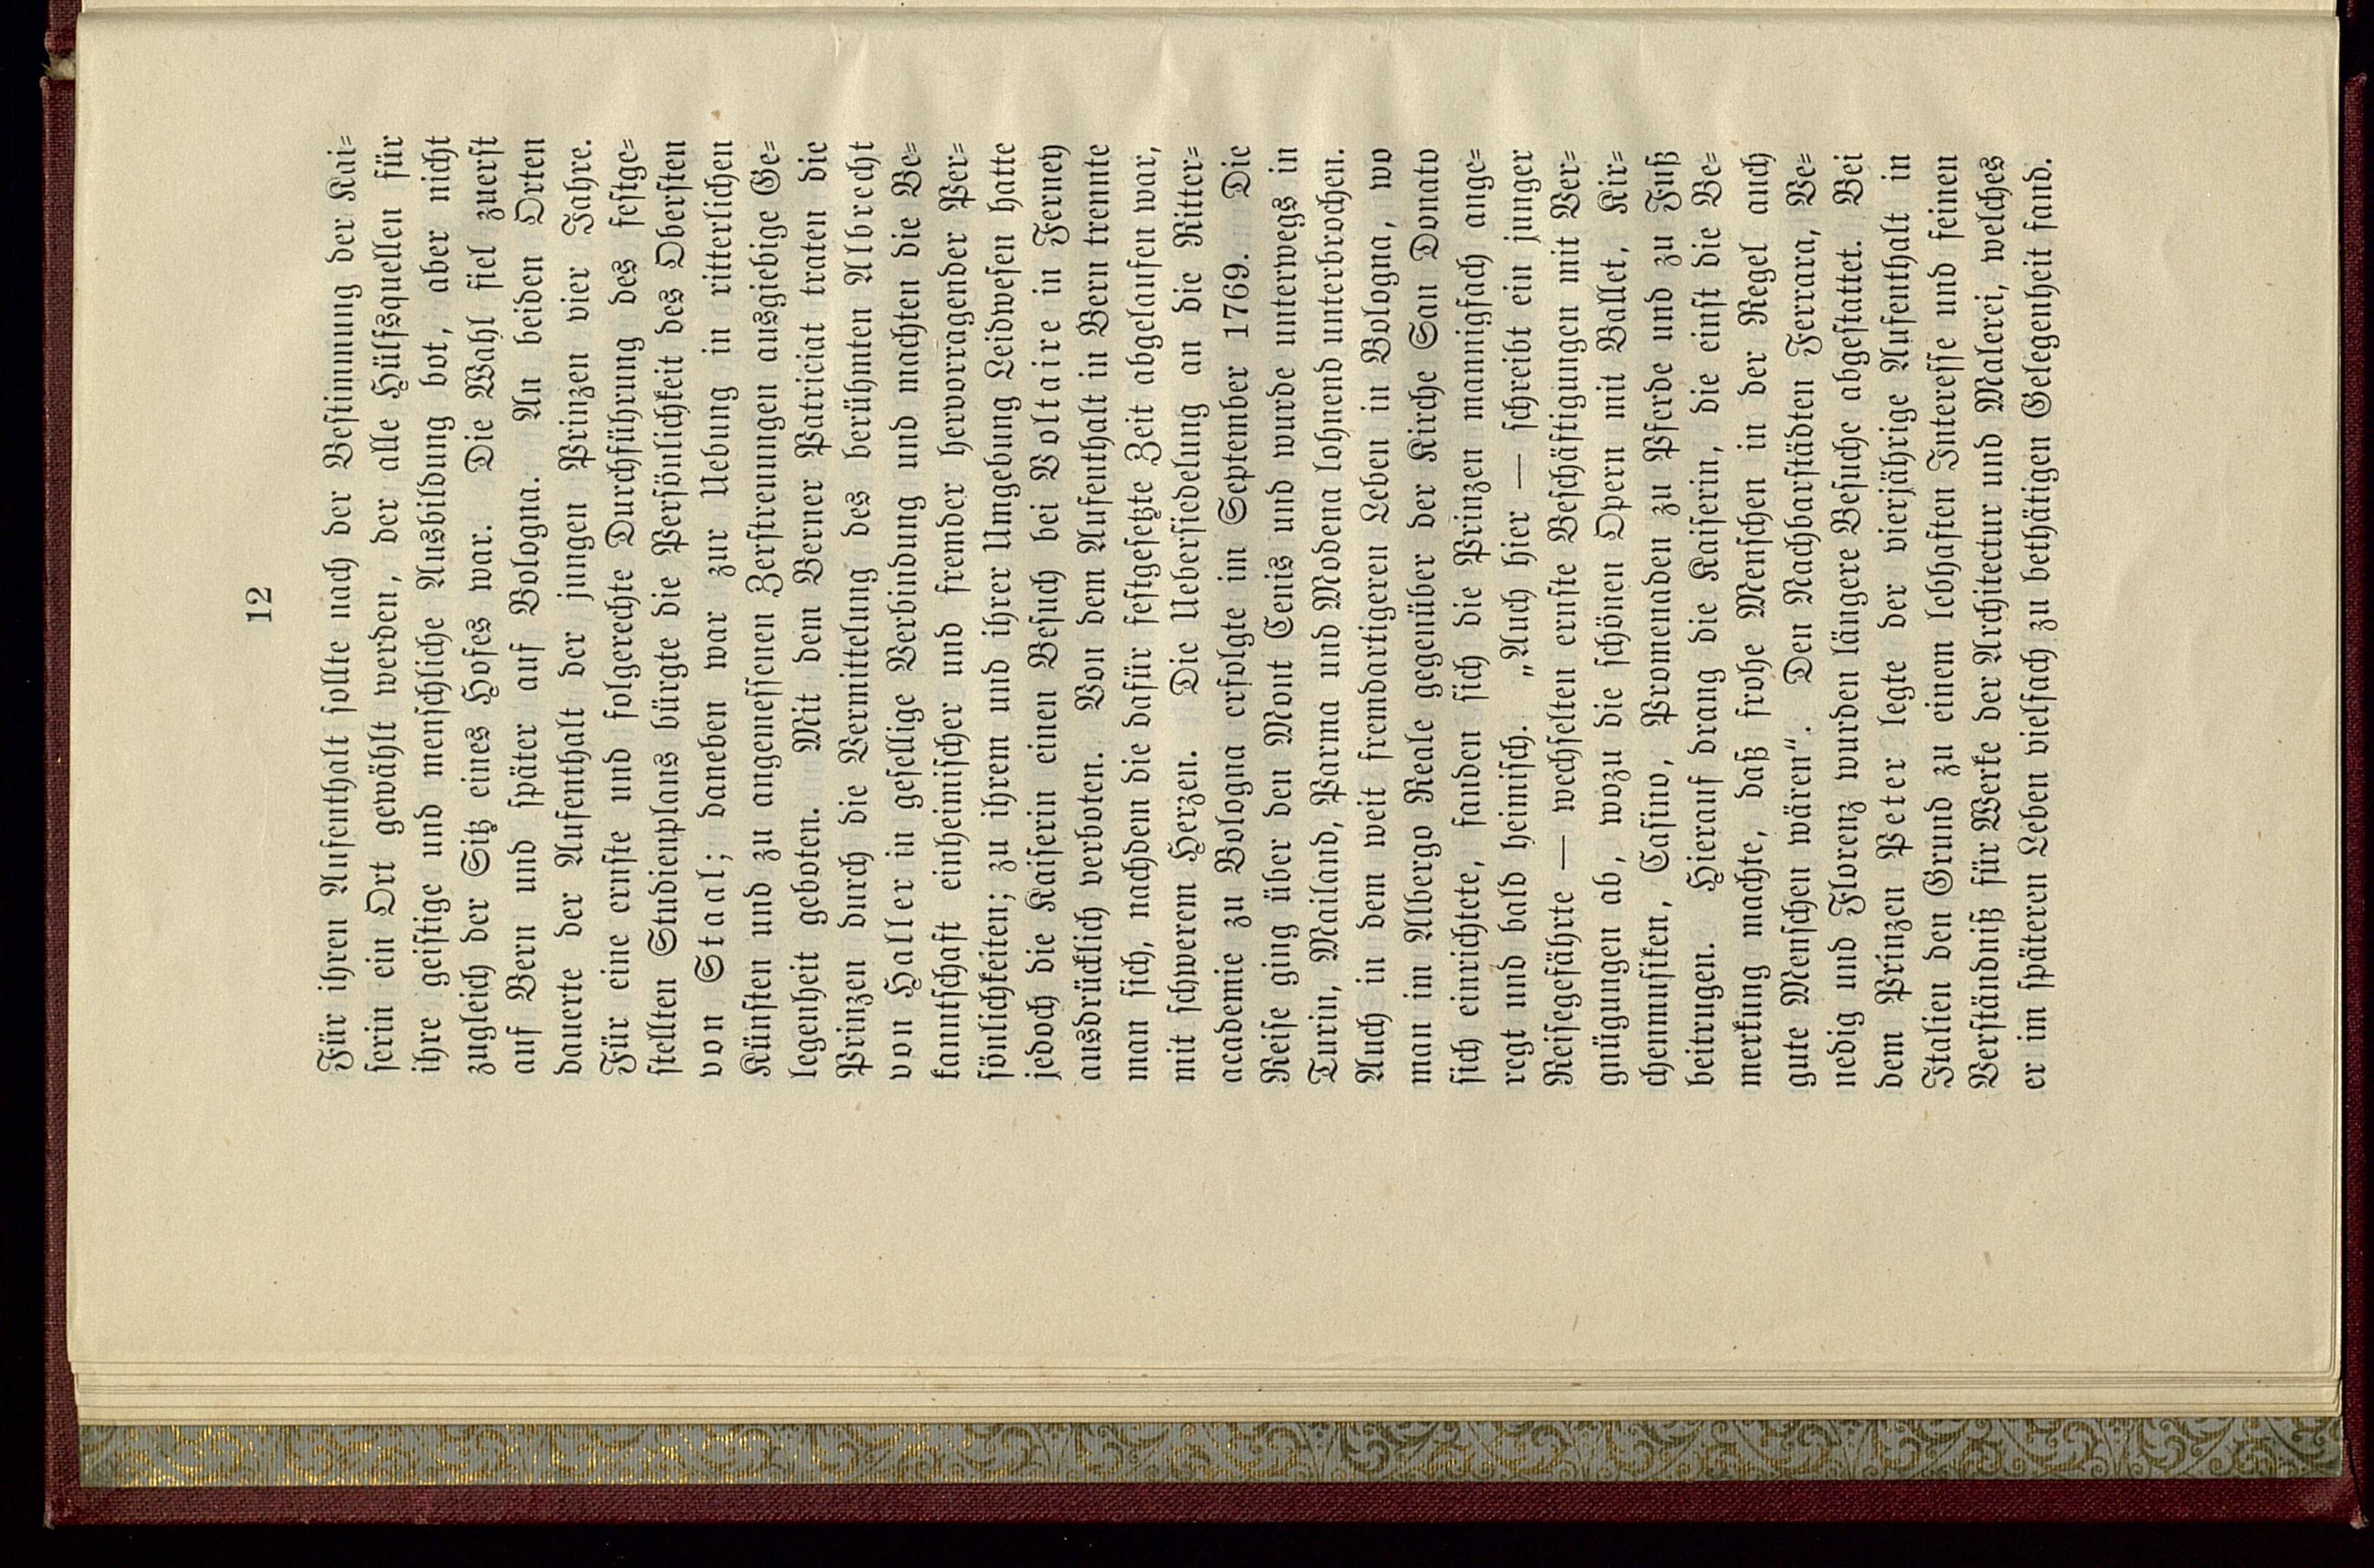 12
Für ihren Aufenthalt ſollte nach der Beſtimmung der Kai⸗
ſerin ein Ort gewählt werden, der alle Hülfsquellen für
ihre geiſtige und menſchliche Ausbildung bot, aber nicht
zugleich der Sitz eines Hofes war. Die Wahl fiel zuerſt
auf Bern und ſpäter auf Bologna. An beiden Orten
dauerte der Aufenthalt der jungen Prinzen vier Jahre.
Für eine ernſte und folgerechte Durchführung des feſtge⸗
ſtellten Studienplans bürgte die Perſönlichkeit des Oberſten
von Staal; daneben war zur Uebung in ritterlichen
Künſten und zu angemeſſenen Zerſtreuungen ausgiebige Ge⸗
legenheit geboten. Mit dem Berner Patriciat traten die
Prinzen durch die Vermittelung des berühmten Albrecht
von Haller in geſellige Verbindung und machten die Be⸗
kanntſchaft einheimiſcher und fremder hervorragender Per⸗
ſönlichkeiten; zu ihrem und ihrer Umgebung Leidweſen hatte
jedoch die Kaiſerin einen Beſuch bei Voltaire in Ferney
ausdrücklich verboten. Von dem Aufenthalt in Bern trennte
man ſich, nachdem die dafür feſtgeſetzte Zeit abgelaufen war,
mit ſchwerem Herzen. Die Ueberſiedelung an die Ritter⸗
academie zu Bologna erfolgte im September 1769. Die
Reiſe ging über den Mont Cenis und wurde unterwegs in
Turin, Mailand, Parma und Modena lohnend unterbrochen.
Auch in dem weit fremdartigeren Leben in Bologna, wo
man im Albergo Reale gegenüber der Kirche San Donato
ſich einrichtete, fanden ſich die Prinzen mannigfach ange⸗
regt und bald heimiſch. „Auch hier — ſchreibt ein junger
Reiſegefährte — wechſelten ernſte Beſchäftigungen mit Ver⸗
gnügungen ab, wozu die ſchönen Opern mit Ballet, Kir⸗
chenmuſiken, Caſino, Promenaden zu Pferde und zu Fuß
beitrugen. Hierauf drang die Kaiſerin, die einſt die Be⸗
merkung machte, daß frohe Menſchen in der Regel auch
gute Menſchen wären“. Den Nachbarſtädten Ferrara, Ve⸗
nedig und Florenz wurden längere Beſuche abgeſtattet. Bei
dem Prinzen Peter legte der vierjährige Aufenthalt in
Italien den Grund zu einem lebhaften Intereſſe und feinen
Verſtändniß für Werke der Architectur und Malerei, welches
er im ſpäteren Leben vielfach zu bethätigen Gelegenheit fand.